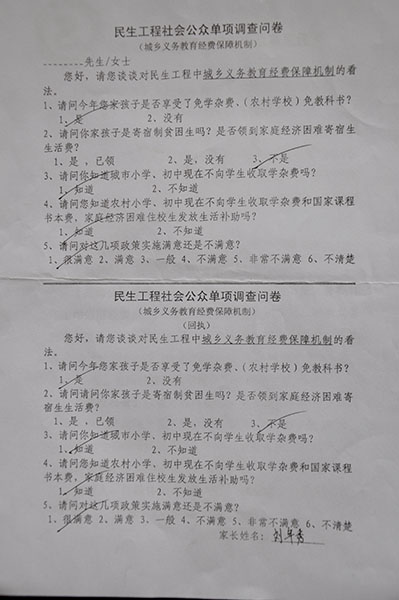 民生工程社会公众单项调查问卷
（城乡义务教育经费保障机制）
--------先生/女士
您好，请您谈谈对民生工程中城乡义务教育经费保障机制的看
法。
1、请问今年您家孩子是否享受了免学杂费、（农村学校）免教科书？
1、是 2、没有
2、请问你家孩子是寄宿制贫困生吗？是否领到家庭经济困难寄宿生
生活费？
1、是，已领 2、是，没有 3、不是
3、请问你知道城市小学、初中现在不向学生收取学杂费吗？
1、知道 2、不知道
4、请问您知道农村小学、初中现在不向学生收取学杂费和国家课程
书本费，家庭经济困难住校生发放生活补助吗？
1、知道 2、不知道
5、请问对这几项政策实施满意还是不满意？
1、很满意 2、满意 3、一般 4、不满意 5、非常不满意 6、不清楚
民生工程社会公众单项调查问卷
（城乡义务教育经费保障机制）
（回执）
您好，请您谈谈对民生工程中城乡义务教育经费保障机制的看
法。
1、请问今年您家孩子是否享受了免学杂费、（农村学校）免教科书？
1、是 2、没有
2、请问请问你家孩子是寄宿制贫困生吗？是否领到家庭经济困难寄
宿生生活费？
1、是，已领 2、是，没有 3、不是
3、请问你知道城市小学、初中现在不向学生收取学杂费吗？
1、知道 2、不知道
4、请问您知道农村小学、初中现在不向学生收取学杂费和国家课程
书本费，家庭经济困难住校生发放生活补助吗？
1、知道 2、不知道
5、请问对这几项政策实施满意还是不满意？
1、很满意 2、满意 3、一般 4、不满意 5、非常不满意 6、不清楚
家长姓名：